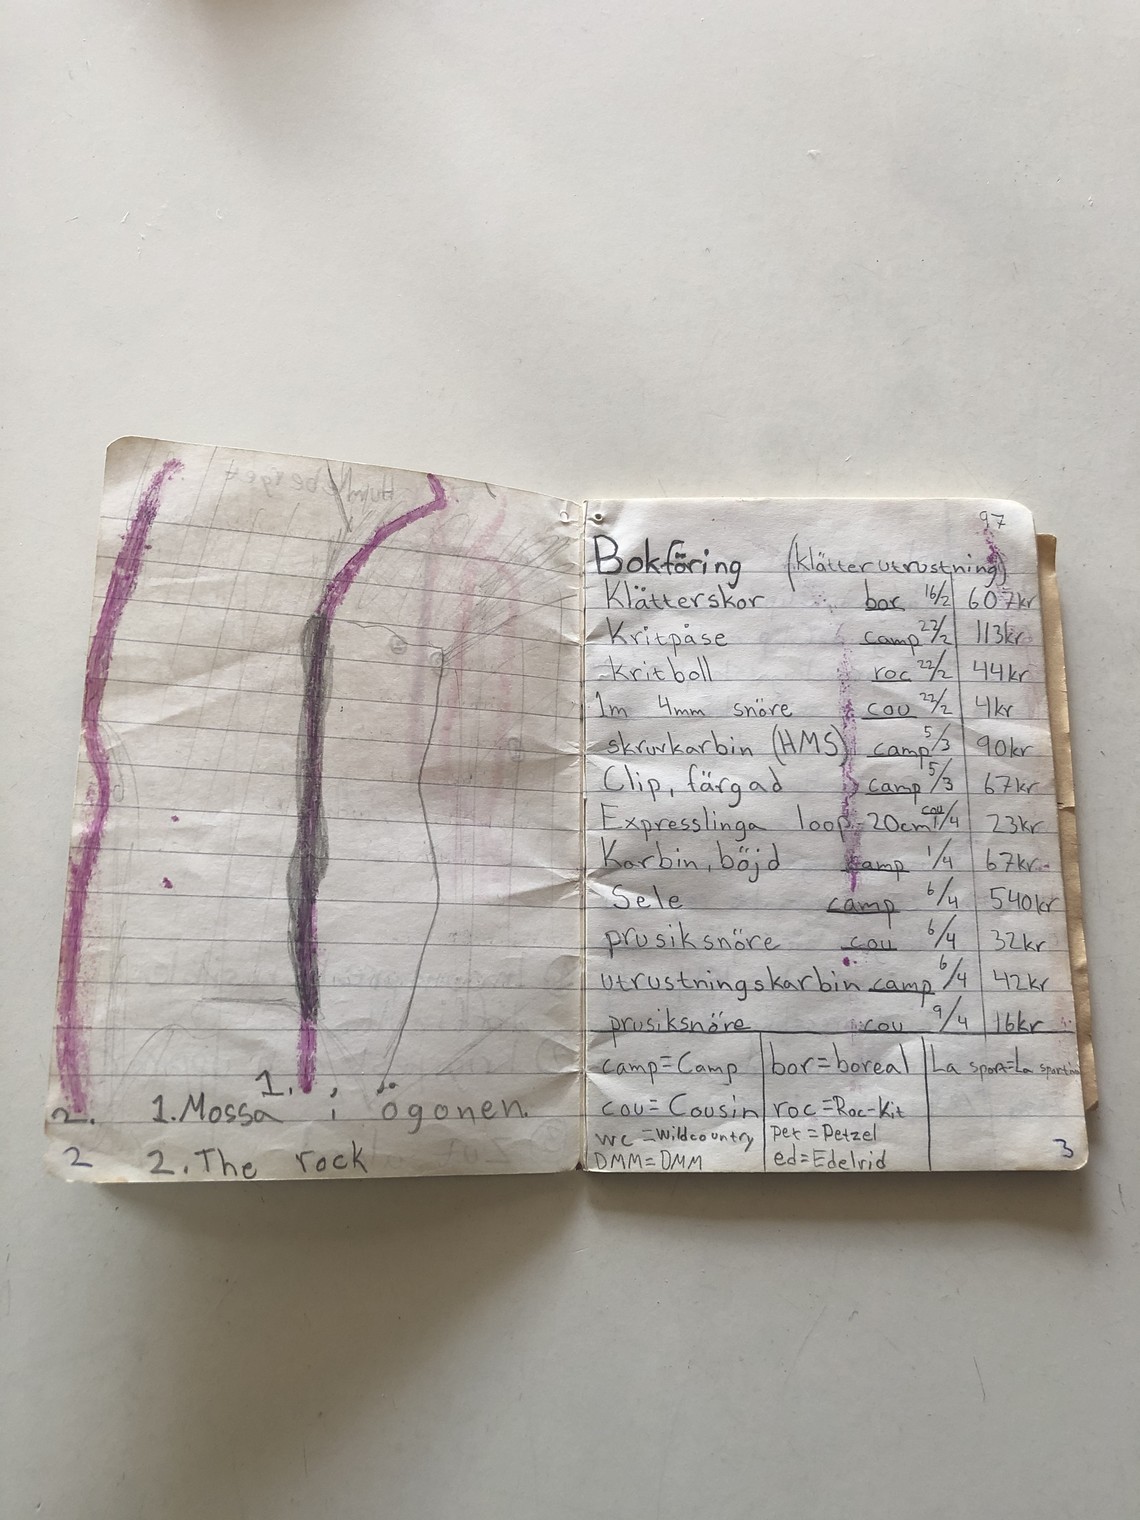 1.
2. 1. Mossa i ögonen.
2 2. The rock
97
Bokföring (klätterutrustning)
Klätterskor bor 16/2 607kr
Kritpåse camp 22/2 113kr
kritboll roc 22/2 44kr
1m 4mm snöre cou 22/2 4kr
skruvkarbin (HMS) camp 5/3 90kr
Clip, färgad camp 5/3 67kr
Expresslinga loop-20cm cou 1/4 23kr
Karbin, böjd camp 1/4 67kr
Sele camp 6/4 540kr
prusiksnöre cou 6/4 32kr
utrustningskarbin camp 6/4 42kr
prusiksnöre cou 9/4 16kr
camp=Camp bor=boreal La sport=La sportiva
cou=Cousin roc=Roc-Kit
wc=wildcountry pet=Petzel
DMM=DMM ed=Edelrid
3